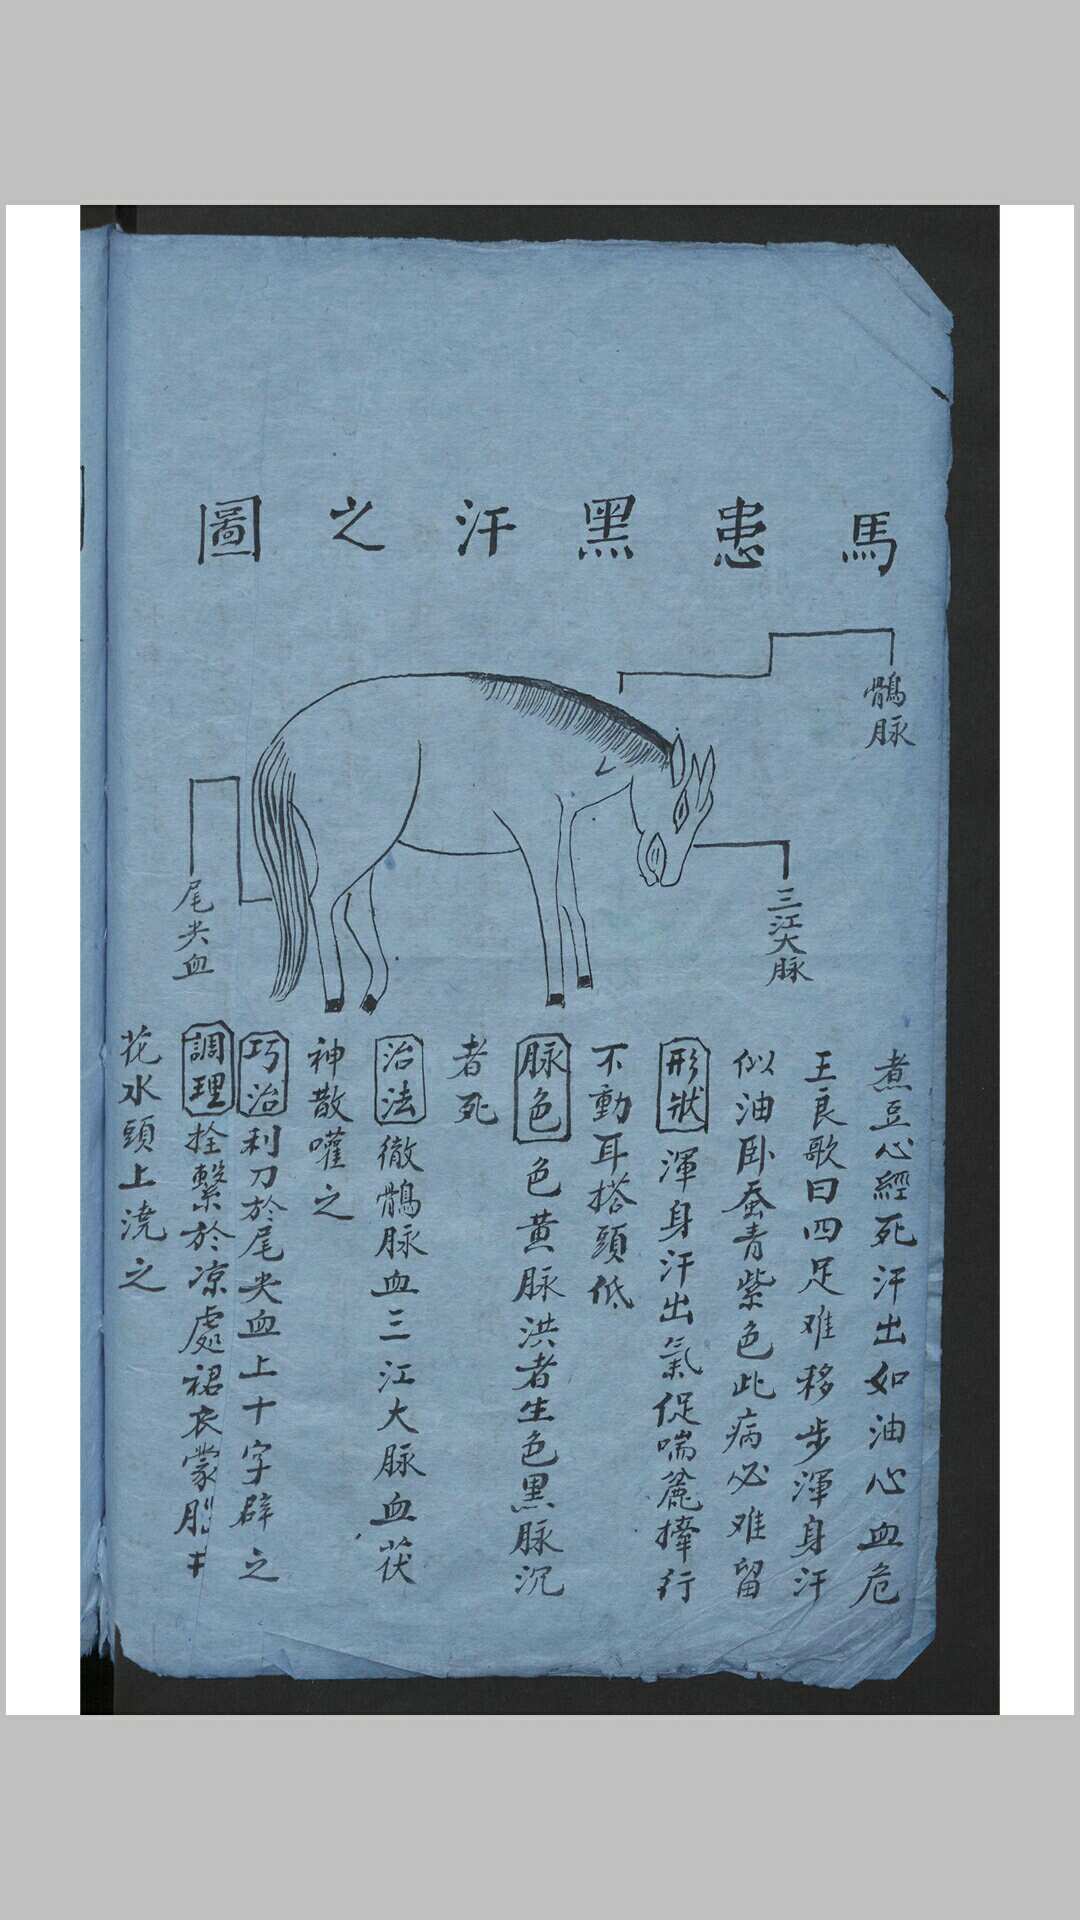 馬患黑汗之圖
鶻脉
三江大脉
尾尖血
煮豆心經死汗出如油心血危
王良歌曰四足难移步渾身汗
似油卧蚕青紫色此病必难留
形狀 渾身汗出氣促喘麄撁行
不動耳搭頭低
脉色 色黄脉洪者生色黑脉沉
者死
治法 徹鶻脉血三江大脉血茯
神散嚾之
巧治 利刀於尾尖血上十字辟之
調理 拴繫於凉處裙衣蒙胸井
花水頭上澆之